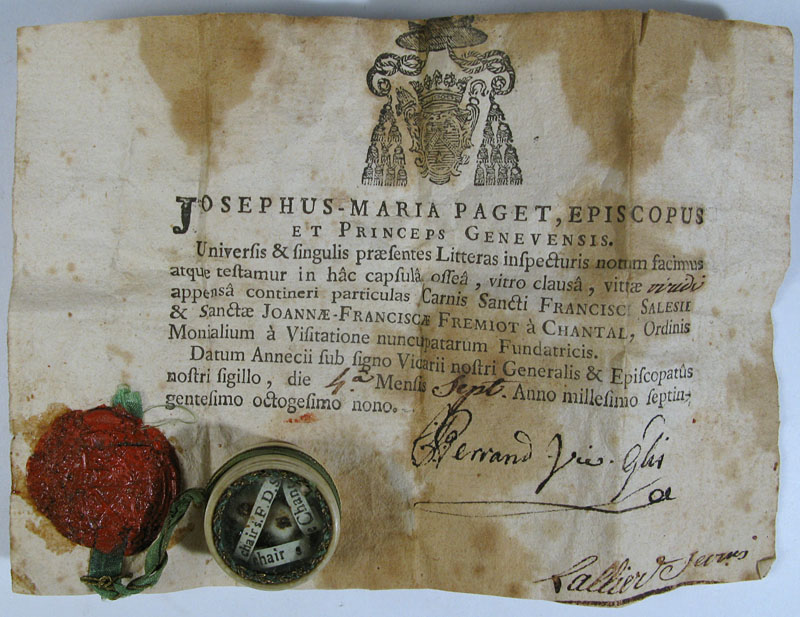 JOSEPHUS-MARIA PAGET, EPISCOPUS
ET PRINCEPS GENEVENSIS.
Universis & singulis præsentes Litteras inspecturis notum facimus
atque testamur in hâc capsulâ osseâ, vitro clausâ, vittæ viridi
appensâ contineri particulas Carnis Sancti FRANCISCI SALESII
& Sanctæ JOANNÆ-FRANCISCÆ FREMIOT à CHANTAL, Ordinis
Monialium à Visitatione nuncupatarum Fundatricis.
Datum Annecii sub signo Vicarii nostri Generalis & Episcopatûs
nostri sigillo, die 4.a Mensis Sept. Anno millesimo septin-
gentesimo octogesimo nono.
Perrand Vic. Glis
chair s. F. D. S.
chair s Chan